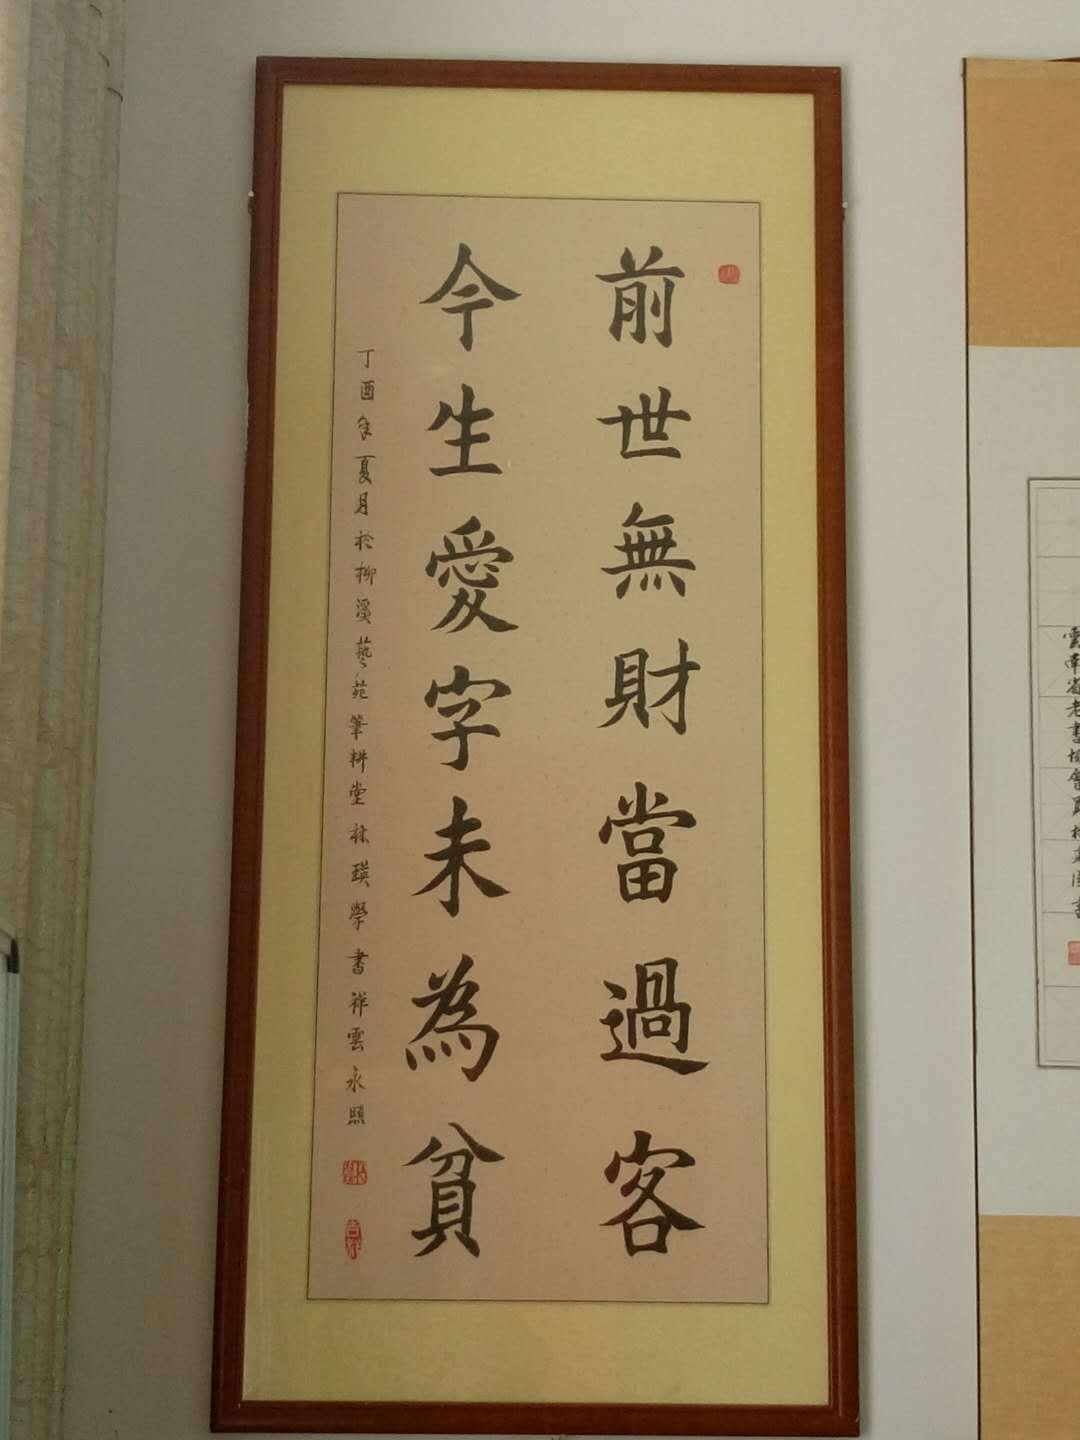 前世無財當過客
今生愛字未為貧
丁酉年夏月於柳溪藝苑筆耕堂林瑛學書祥雲永照
吉祥
雲南省老書協會員